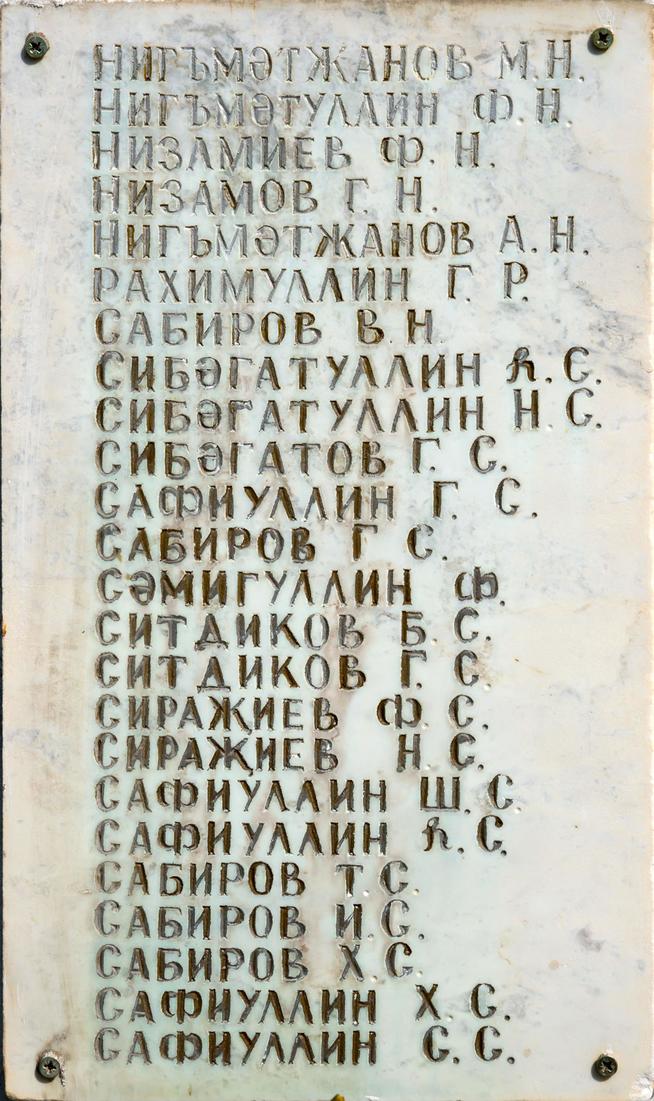 НИГЪМӘТЖАНОВ М.Н.
НИГЪМӘТУЛЛИН Ф.Н.
НИЗАМИЕВ Ф. Н.
НИЗАМОВ Г. Н.
НИГЪМӘТЖАНОВ А.Н.
РАХИМУЛЛИН Г. Р.
САБИРОВ В.Н.
СИБӘГАТУЛЛИН Һ.С.
СИБӘГАТУЛЛИН Н.С.
СИБӘГАТОВ Г. С.
САФИУЛЛИН Г. С.
САБИРОВ Г С.
СӘМИГУЛЛИН Ф.
СИТДИКОВ Б. С.
СИТДИКОВ Г. С
СИРАҖИЕВ Ф. С.
СИРАҖИЕВ Н С.
САФИУЛЛИН Ш. С.
САФИУЛЛИН Һ. С.
САБИРОВ Т С.
САБИРОВ И.С.
САБИРОВ Х.С.
САФИУЛЛИН Х. С.
САФИУЛЛИН С. С.